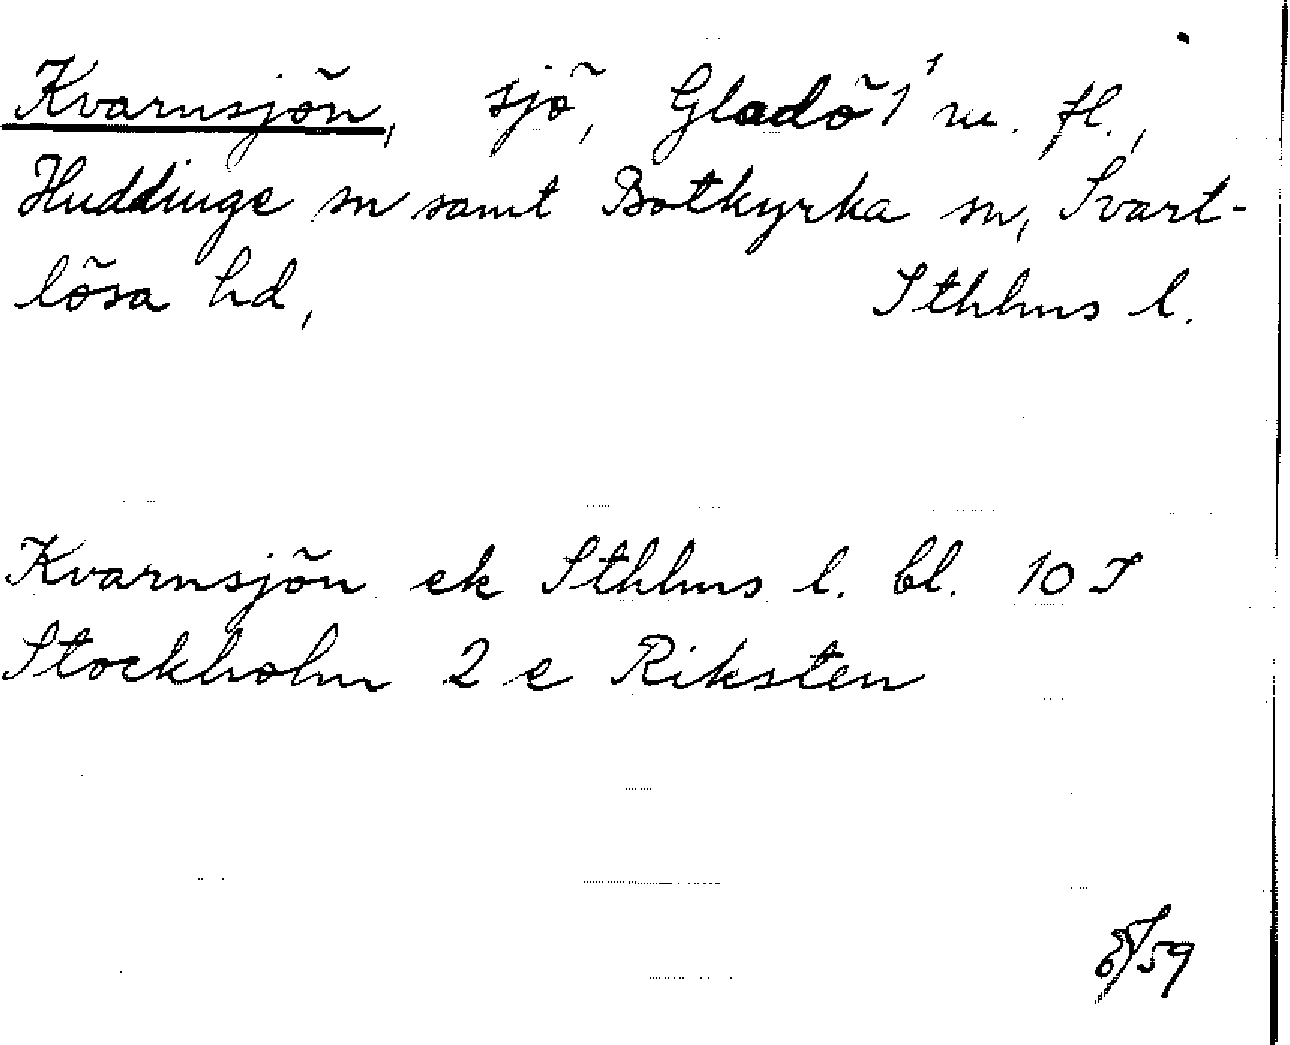 Kvarnsjön, sjö, Gladö 1 m. fl.,
Huddinge sn samt Botkyrka sn, Svart-
lösa hd, Sthlms l.
Kvarnsjön ek Sthlms l. bl. 10 I
Stockholm 2 e Riksten